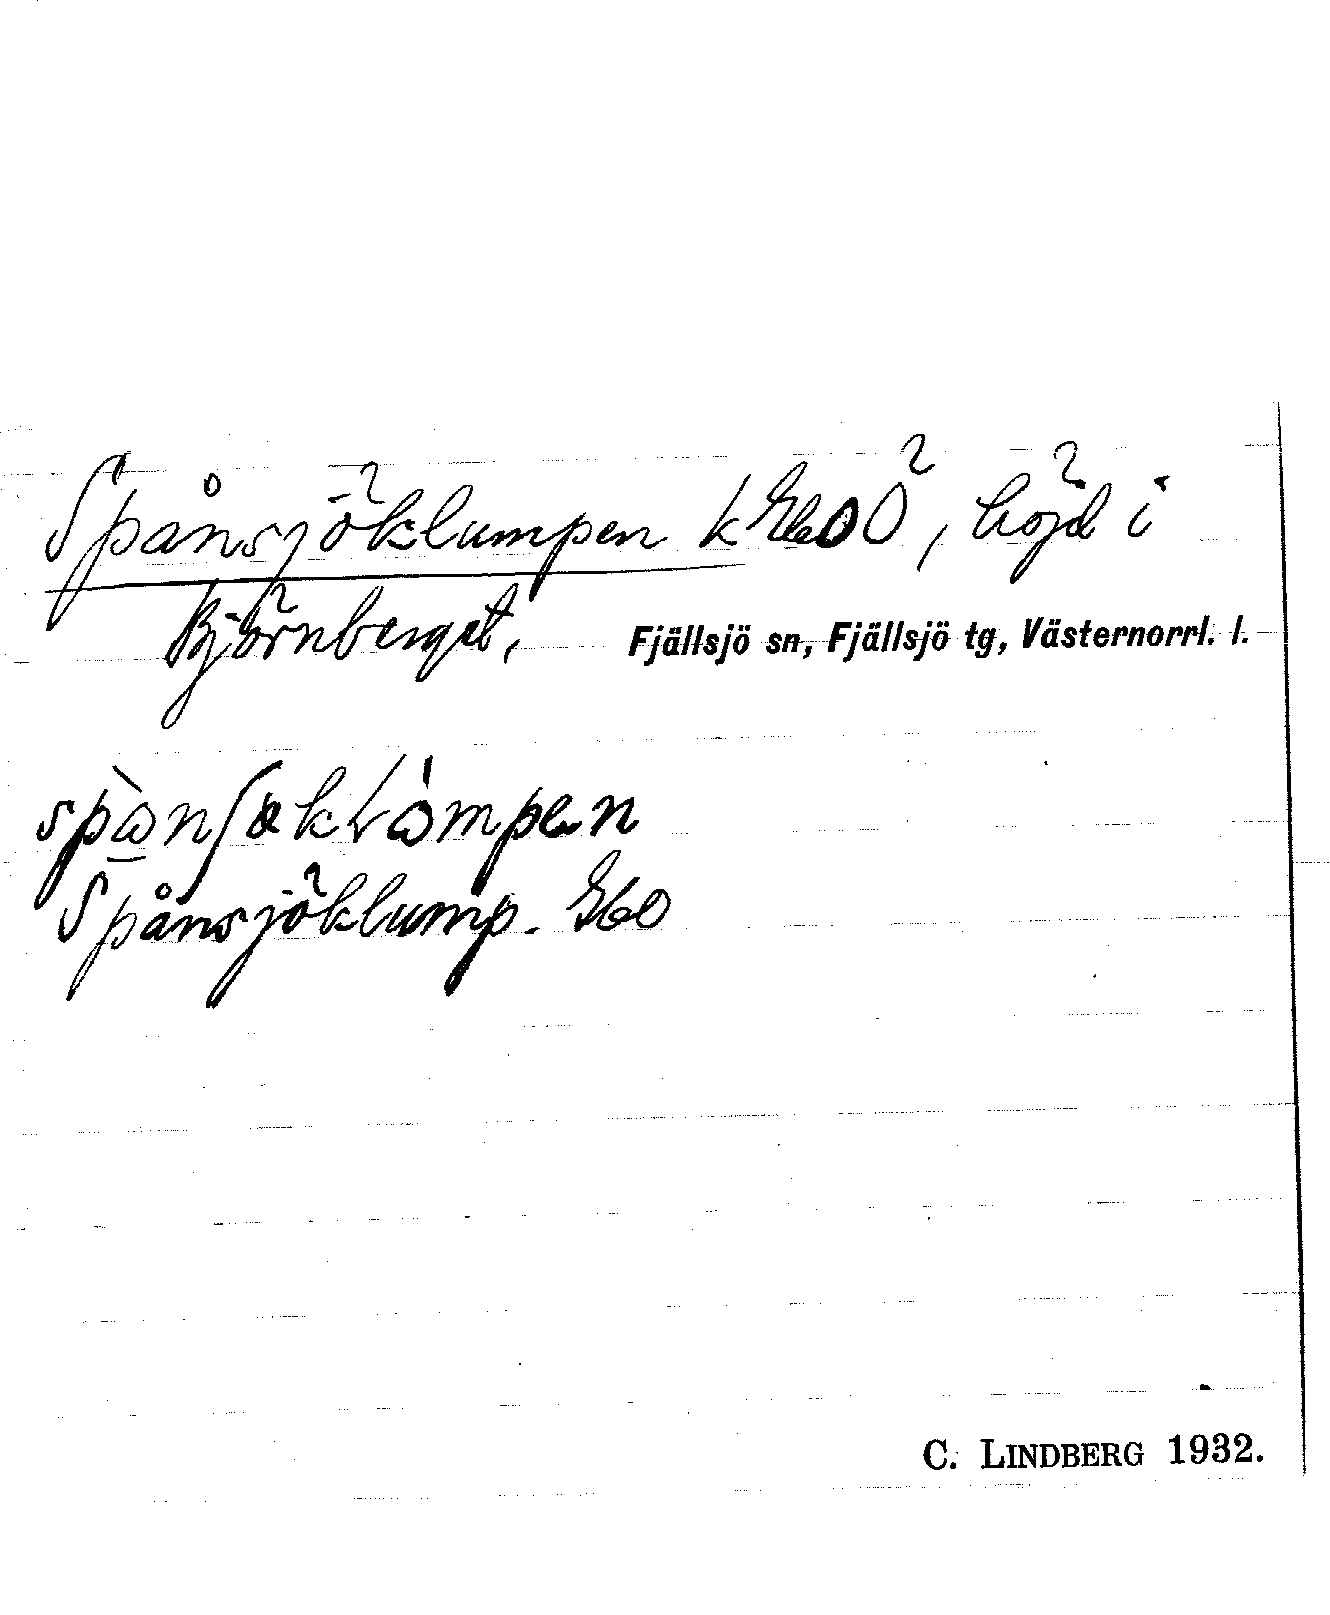 Spånsjöklumpen k Gbo Ö, höjd i
Björnberget, Fjällsjö sn, Fjällsjö tg, Västernorrl. l.
Spånsjöklump. Gbo
C. LINDBERG 1932.